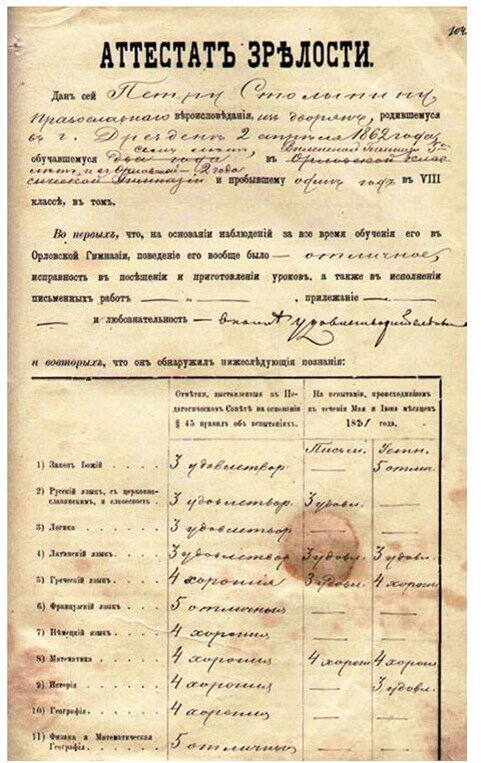 104
АТТЕСТАТЪ ЗРѢЛОСТИ.
Данъ сей Петру Столыпину,
Православнаго вѣроисповѣданія, изъ дворянъ, родившемуся
въ г. Дрезденѣ 2 апрѣля 1862 года,
семь лѣтъ, Виленской Гимназіи 5
обучавшемуся два года въ Орловской клас-
лѣтъ, и въ Орловской — 2 года
сической Гимназіи и пробывшему одинъ годъ въ VIII
классѣ, въ томъ.
Во первыхъ, что, на основаніи наблюденій за все время обученія его въ
Орловской Гимназіи, поведеніе его вообще было — отличное,
исправность въ посѣщеніи и приготовленіи уроковъ, а также въ исполненіи
письменныхъ работъ — „ — , прилежаніе —
— и любознательность — вполнѣ удовлетворительны
и вовторыхъ, что онъ обнаружилъ нижеслѣдующія познанія:
Отмѣтки, выставленныя въ Пе-
дагогическомъ Совѣтѣ на основаніи
§ 45 правилъ объ испытаніяхъ.
На испытаніи, происходившемъ
въ теченіи Мая и Іюня мѣсяцевъ
1881 года.
Письм. Устн.
1) Законъ Божій . . . . 3 удовлетвор. — 5 отли.
2) Русскій языкъ, съ церковно-
славянскимъ, и словесность . 3 удовлетвор. 3 удовл. —
3) Логика . . . . . 3 удовлетвор — —
4) Латинскій языкъ . . . . 3 удовлетвор 3 удовл. 3 удовл.
5) Греческій языкъ . . . . 4 хорошія 3 удовл. 4 хорош
6) Французскій языкъ . . . 5 отличныя — —
7) Нѣмецкій языкъ . . . . 4 хорошія — —
8) Математика . . . . . 4 хорошія 4 хорош 4 хорош
9) Исторія . . . . . 4 хорошія — 3 удовл.
10) Географія . . . . . 4 хорошія — —
11) Физика и Математическая
Географія . . . . . 5 отлично — —